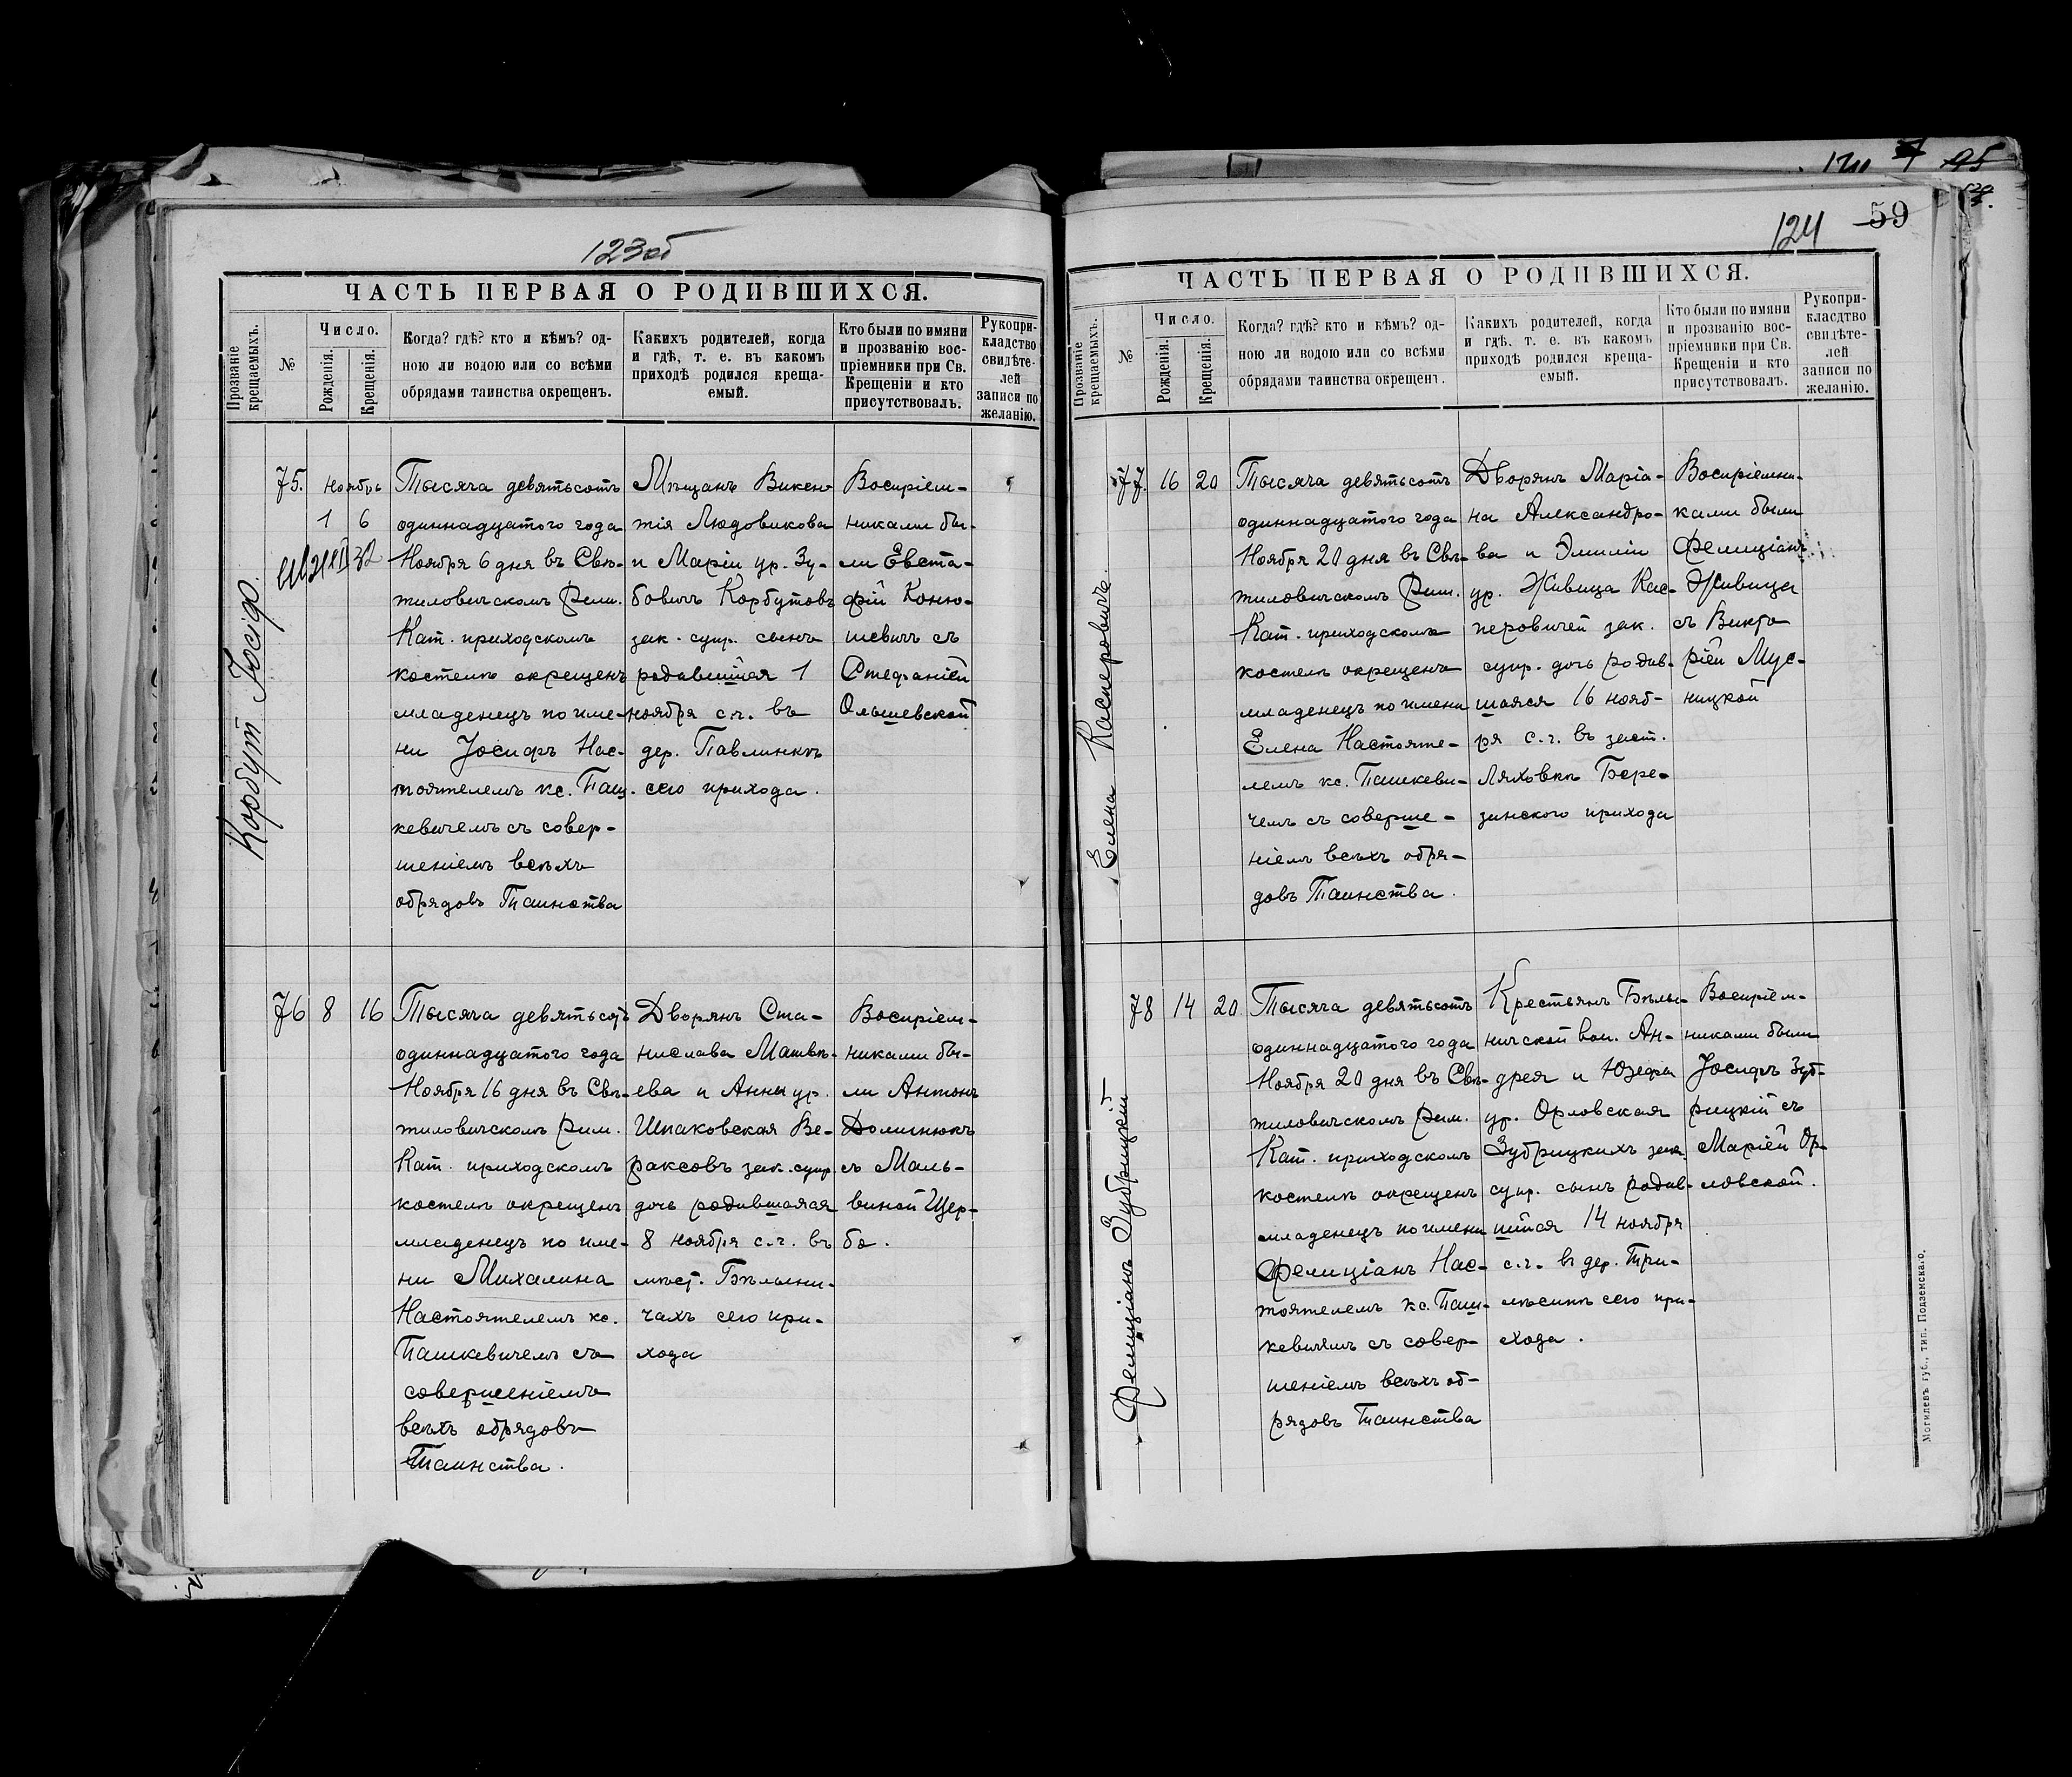 123об
ЧАСТЬ ПЕРВАЯ О РОДИВШИХСЯ.
Прозваніе крещаемыхъ.
№
Число.
Рожденія.
Крещенія.
Когда? гдѣ? кто и кѣмъ? од-
ною ли водою или со всѣми
обрядами таинства окрещенъ.
Какихъ родителей, когда
и гдѣ, т. е. въ какомъ
приходѣ родился креща-
емый.
Кто были по имяни
и прозванію вос-
пріемники при Св.
Крещеніи и кто
присутствовалъ.
Рукопри-
кладство
свидѣте-
лей
записи по
желанію.
Корбут Іосифъ.
75.
Ноябрь
1 6
Тысяча девятьсотъ
одиннадцатого года
Ноября 6 дня въ Свѣ-
тиловичскомъ Рим.
Кат. приходскомъ
костелѣ окрещенъ
младенецъ по име-
ни Іосифъ Нас-
тоятелемъ кс. Паш-
кевичемъ съ совер-
шеніемъ всѣхъ
обрядовъ Таинства
Мѣщанъ Викен-
тія Людовикова
и Маріи ур. Зу-
бовичъ Корбутовъ
зак. супр. сынъ
родившійся 1
ноября с.г. въ
дер. Павлинкѣ
сего прихода.
Воспріем-
никами бы-
ли Евста-
фій Коню-
шевичъ съ
Стефаніей
Ольшевской
76 8 16
Тысяча девятьсотъ
одиннадцатого года
Ноября 16 дня въ Свѣ-
тиловичскомъ Рим.
Кат. приходскомъ
костелѣ окрещенъ
младенецъ по име-
ни Михалина
Настоятелемъ кс.
Пашкевичемъ съ
совершеніемъ
всѣхъ обрядовъ
Таинства.
Дворянъ Ста-
нислава Матвѣ-
ева и Анны ур.
Шпаковская Ве-
раксовъ зак. супр
дочь родившаяся
8 ноября с.г. въ
мѣст. Бѣлыни-
чахъ сего при-
хода
Воспріем-
никами бы-
ли Антонъ
Долинюкъ
съ Маль-
виной Щер-
бо.
124 59
ЧАСТЬ ПЕРВАЯ О РОДИВШИХСЯ.
Прозваніе крещаемыхъ.
№
Число.
Рожденія.
Крещенія.
Когда? гдѣ? кто и кѣмъ? од-
ною ли водою или со всѣми
обрядами таинства окрещенъ.
Какихъ родителей, когда
и гдѣ, т. е. въ какомъ
приходѣ родился креща-
емый.
Кто были по имяни
и прозванію вос-
пріемники при Св.
Крещеніи и кто
присутствовалъ.
Рукопри-
кладство
свидѣте-
лей
записи по
желанію.
Елена Касперовичъ.
77. 16 20
Тысяча девятьсотъ
одиннадцатого года
Ноября 20 дня въ Свѣ-
тиловичскомъ Рим.
Кат. приходскомъ
костелѣ окрещенъ
младенецъ по имени
Елена Настояте-
лемъ кс. Пашкеви-
чемъ съ соверше-
ніемъ всѣхъ обря-
довъ Таинства.
Дворянъ Маріа-
на Александро-
ва и Эмиліи
ур. Живица Кас-
перовичей зак.
супр. дочь родив-
шаяся 16 нояб-
ря с.г. въ заст.
Ляховкѣ Бере-
зинского прихода
Воспріемни-
ками были
Фелиціанъ
Живица
съ Викто
ріей Мус-
ницкой
Фелиціанъ Зубрицкій
78 14 20
Тысяча девятьсотъ
одиннадцатого года
Ноября 20 дня въ Свѣ-
тиловичскомъ Рим.
Кат. приходскомъ
костелѣ окрещенъ
младенецъ по имени
Фелиціанъ Нас-
тоятелемъ кс. Паш-
кевичемъ съ совер-
шеніемъ всѣхъ об-
рядовъ Таинства
Крестьянъ Бѣлы-
ничской вол. Ан-
дрея и Юзефы
ур. Орловская
Зубрицкихъ зак.
супр. сынъ родив-
шійся 14 ноября
с.г. въ дер. Три-
лѣсинѣ сего при-
хода.
Воспріем-
никами были
Іосифъ Зуб-
рицкій съ
Маріей Ор-
ловской.
Могилевъ губ., тип. Подземскаго.